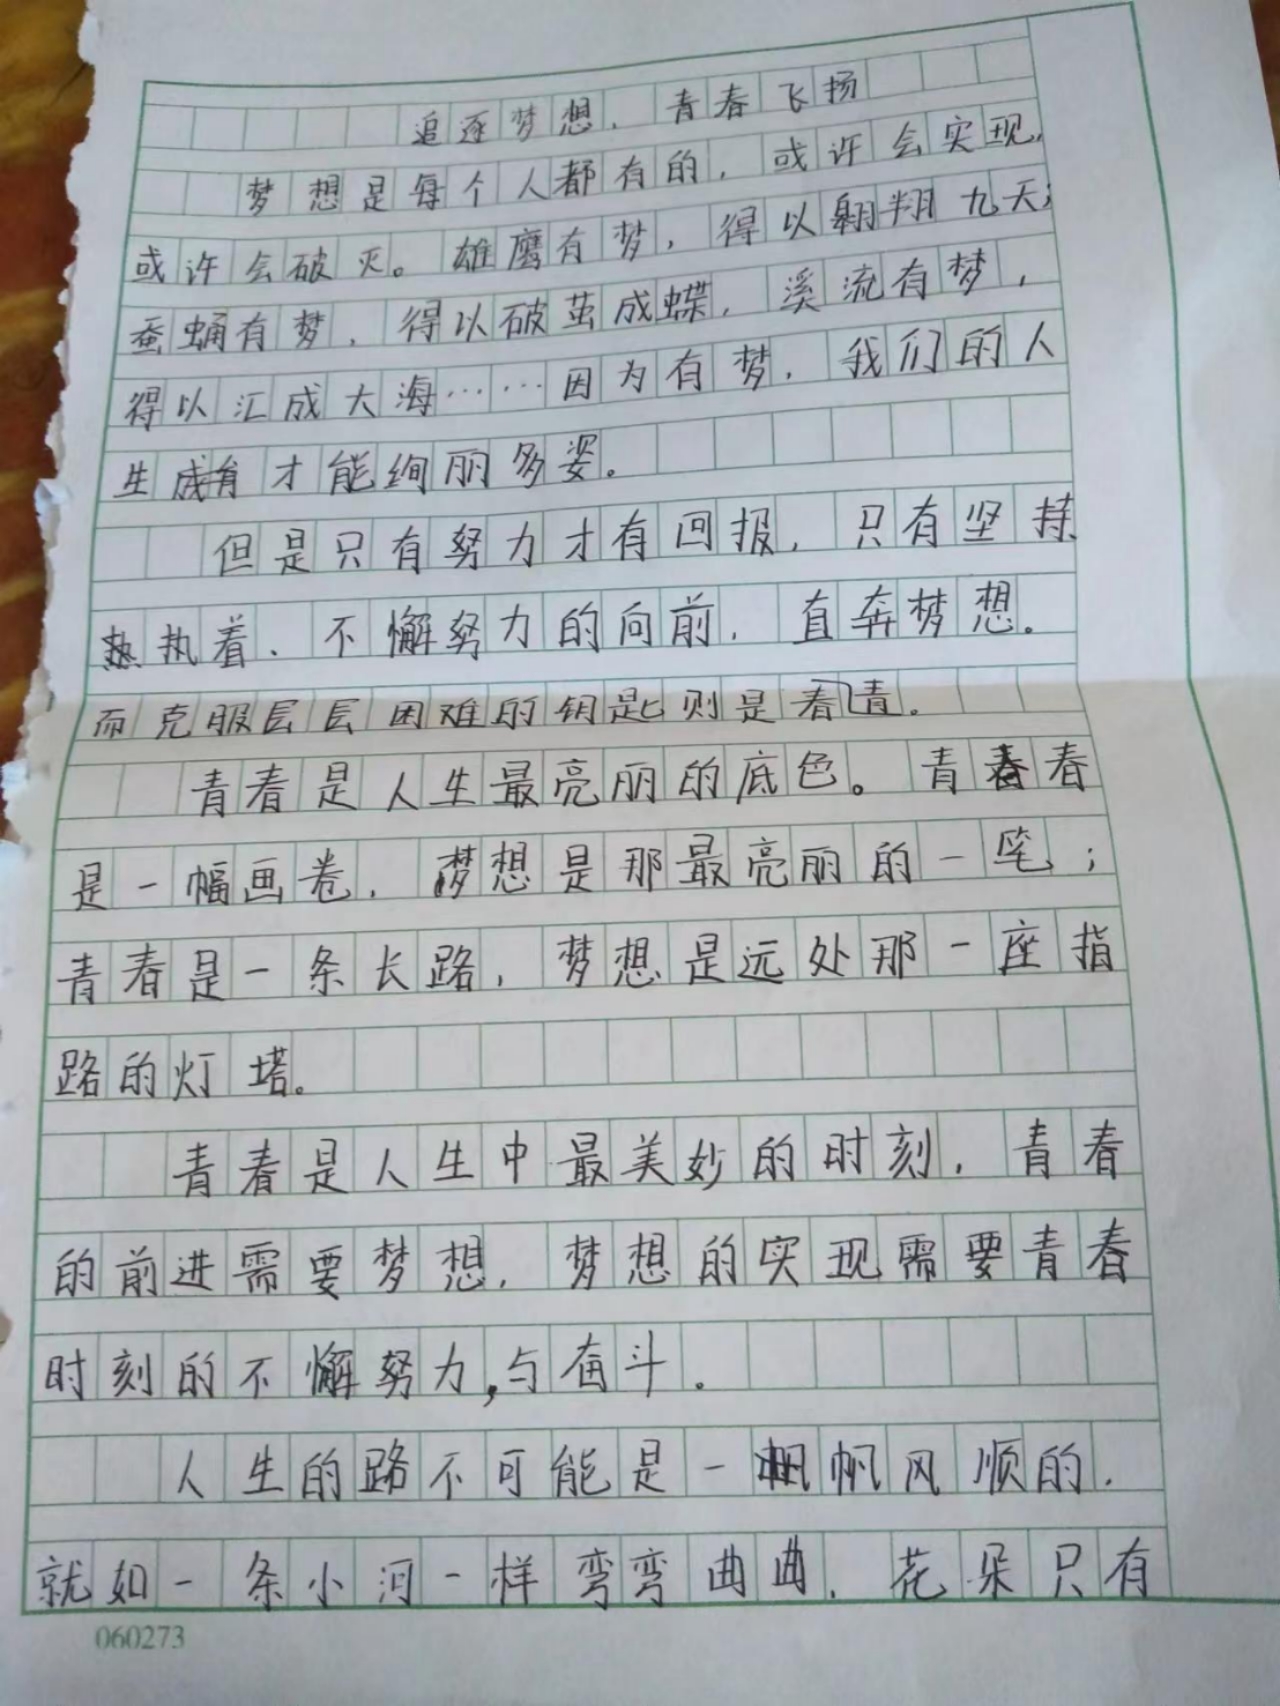 追逐梦想，青春飞扬
梦想是每个人都有的，或许会实现，
或许会破灭。雄鹰有梦，得以翱翔九天；
蚕蛹有梦，得以破茧成蝶，溪流有梦，
得以汇成大海……因为有梦，我们的人
生才能绚丽多姿。
但是只有努力才有回报，只有坚持
执着、不懈努力的向前，直奔梦想。
而克服层层困难的钥匙则是春青。
青春是人生最亮丽的底色。青春
是一幅画卷，梦想是那最亮丽的一笔；
青春是一条长路，梦想是远处那一座指
路的灯塔。
青春是人生中最美妙的时刻，青春
的前进需要梦想，梦想的实现需要青春
时刻的不懈努力，与奋斗。
人生的路不可能是一帆风顺的，
就如一条小河一样弯弯曲曲，花朵只有
060273